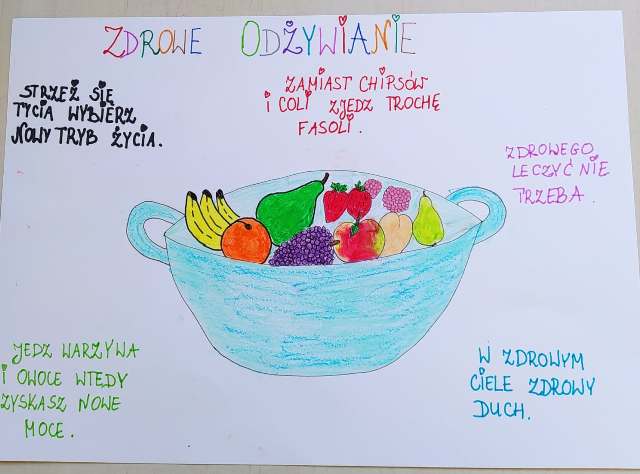 ZDROWE ODŻYWIANIE
STRZEŻ SIĘ
TYCIA WYBIERZ
NOWY TRYB ŻYCIA.
ZAMIAST CHIPSÓW
I COLI ZJEDZ TROCHĘ
FASOLI.
ZDROWEGO
LECZYĆ NIE
TRZEBA.
JEDZ WARZYWA
I OWOCE WTEDY
ZYSKASZ NOWE
MOCE.
W ZDROWYM
CIELE ZDROWY
DUCH.